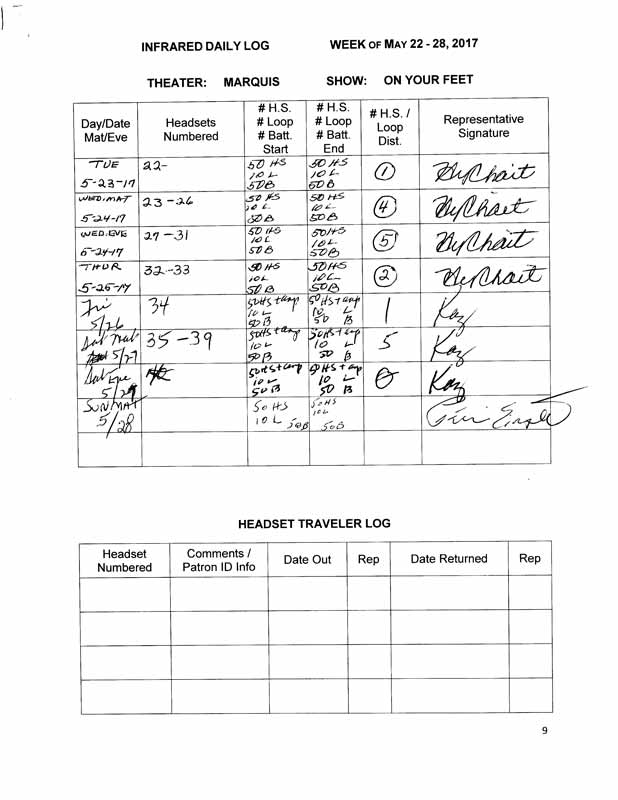 INFRARED DAILY LOG WEEK OF MAY 22 - 28, 2017
THEATER: MARQUIS SHOW: ON YOUR FEET
Day/Date Mat/Eve | Headsets Numbered | # H.S. # Loop # Batt. Start | # H.S. # Loop # Batt. End | # H.S. / Loop Dist. | Representative Signature
TUE 5-23-17 | 22- | 50 HS 10 L 50B | 50 HS 10 L 50 B | 1 | HyChait
WED.MAT 5-24-17 | 23-26 | 50 HS 10 L 50 B | 50 HS 10 L 50 B | 4 | HyChait
WED.EVE 5-24-17 | 27-31 | 50 HS 10 L 50 B | 50 HS 10 L 50 B | 5 | HyChait
THUR 5-25-17 | 32-33 | 50 HS 10 L 50 B | 50 HS 10 L 50 B | 2 | HyChait
Fri 5/26 | 34 | 50 HS + amp 10 L 50 B | 50 HS + amp 10 L 50 B | 1 | Kaz
Sat Mat 5/27 | 35-39 | 50 HS + amp 10 L 50 B | 50 HS + amp 10 L 50 B | 5 | Kaz
Sat Eve 5/27 | 50 HS + amp 10 L 50 B | 50 HS + amp 10 L 50 B | 0 | Kaz
SUN/MAT 5/28 | 50 HS 10 L 50B | 50 HS 10 L 50B
HEADSET TRAVELER LOG
Headset Numbered | Comments / Patron ID Info | Date Out | Rep | Date Returned | Rep
9